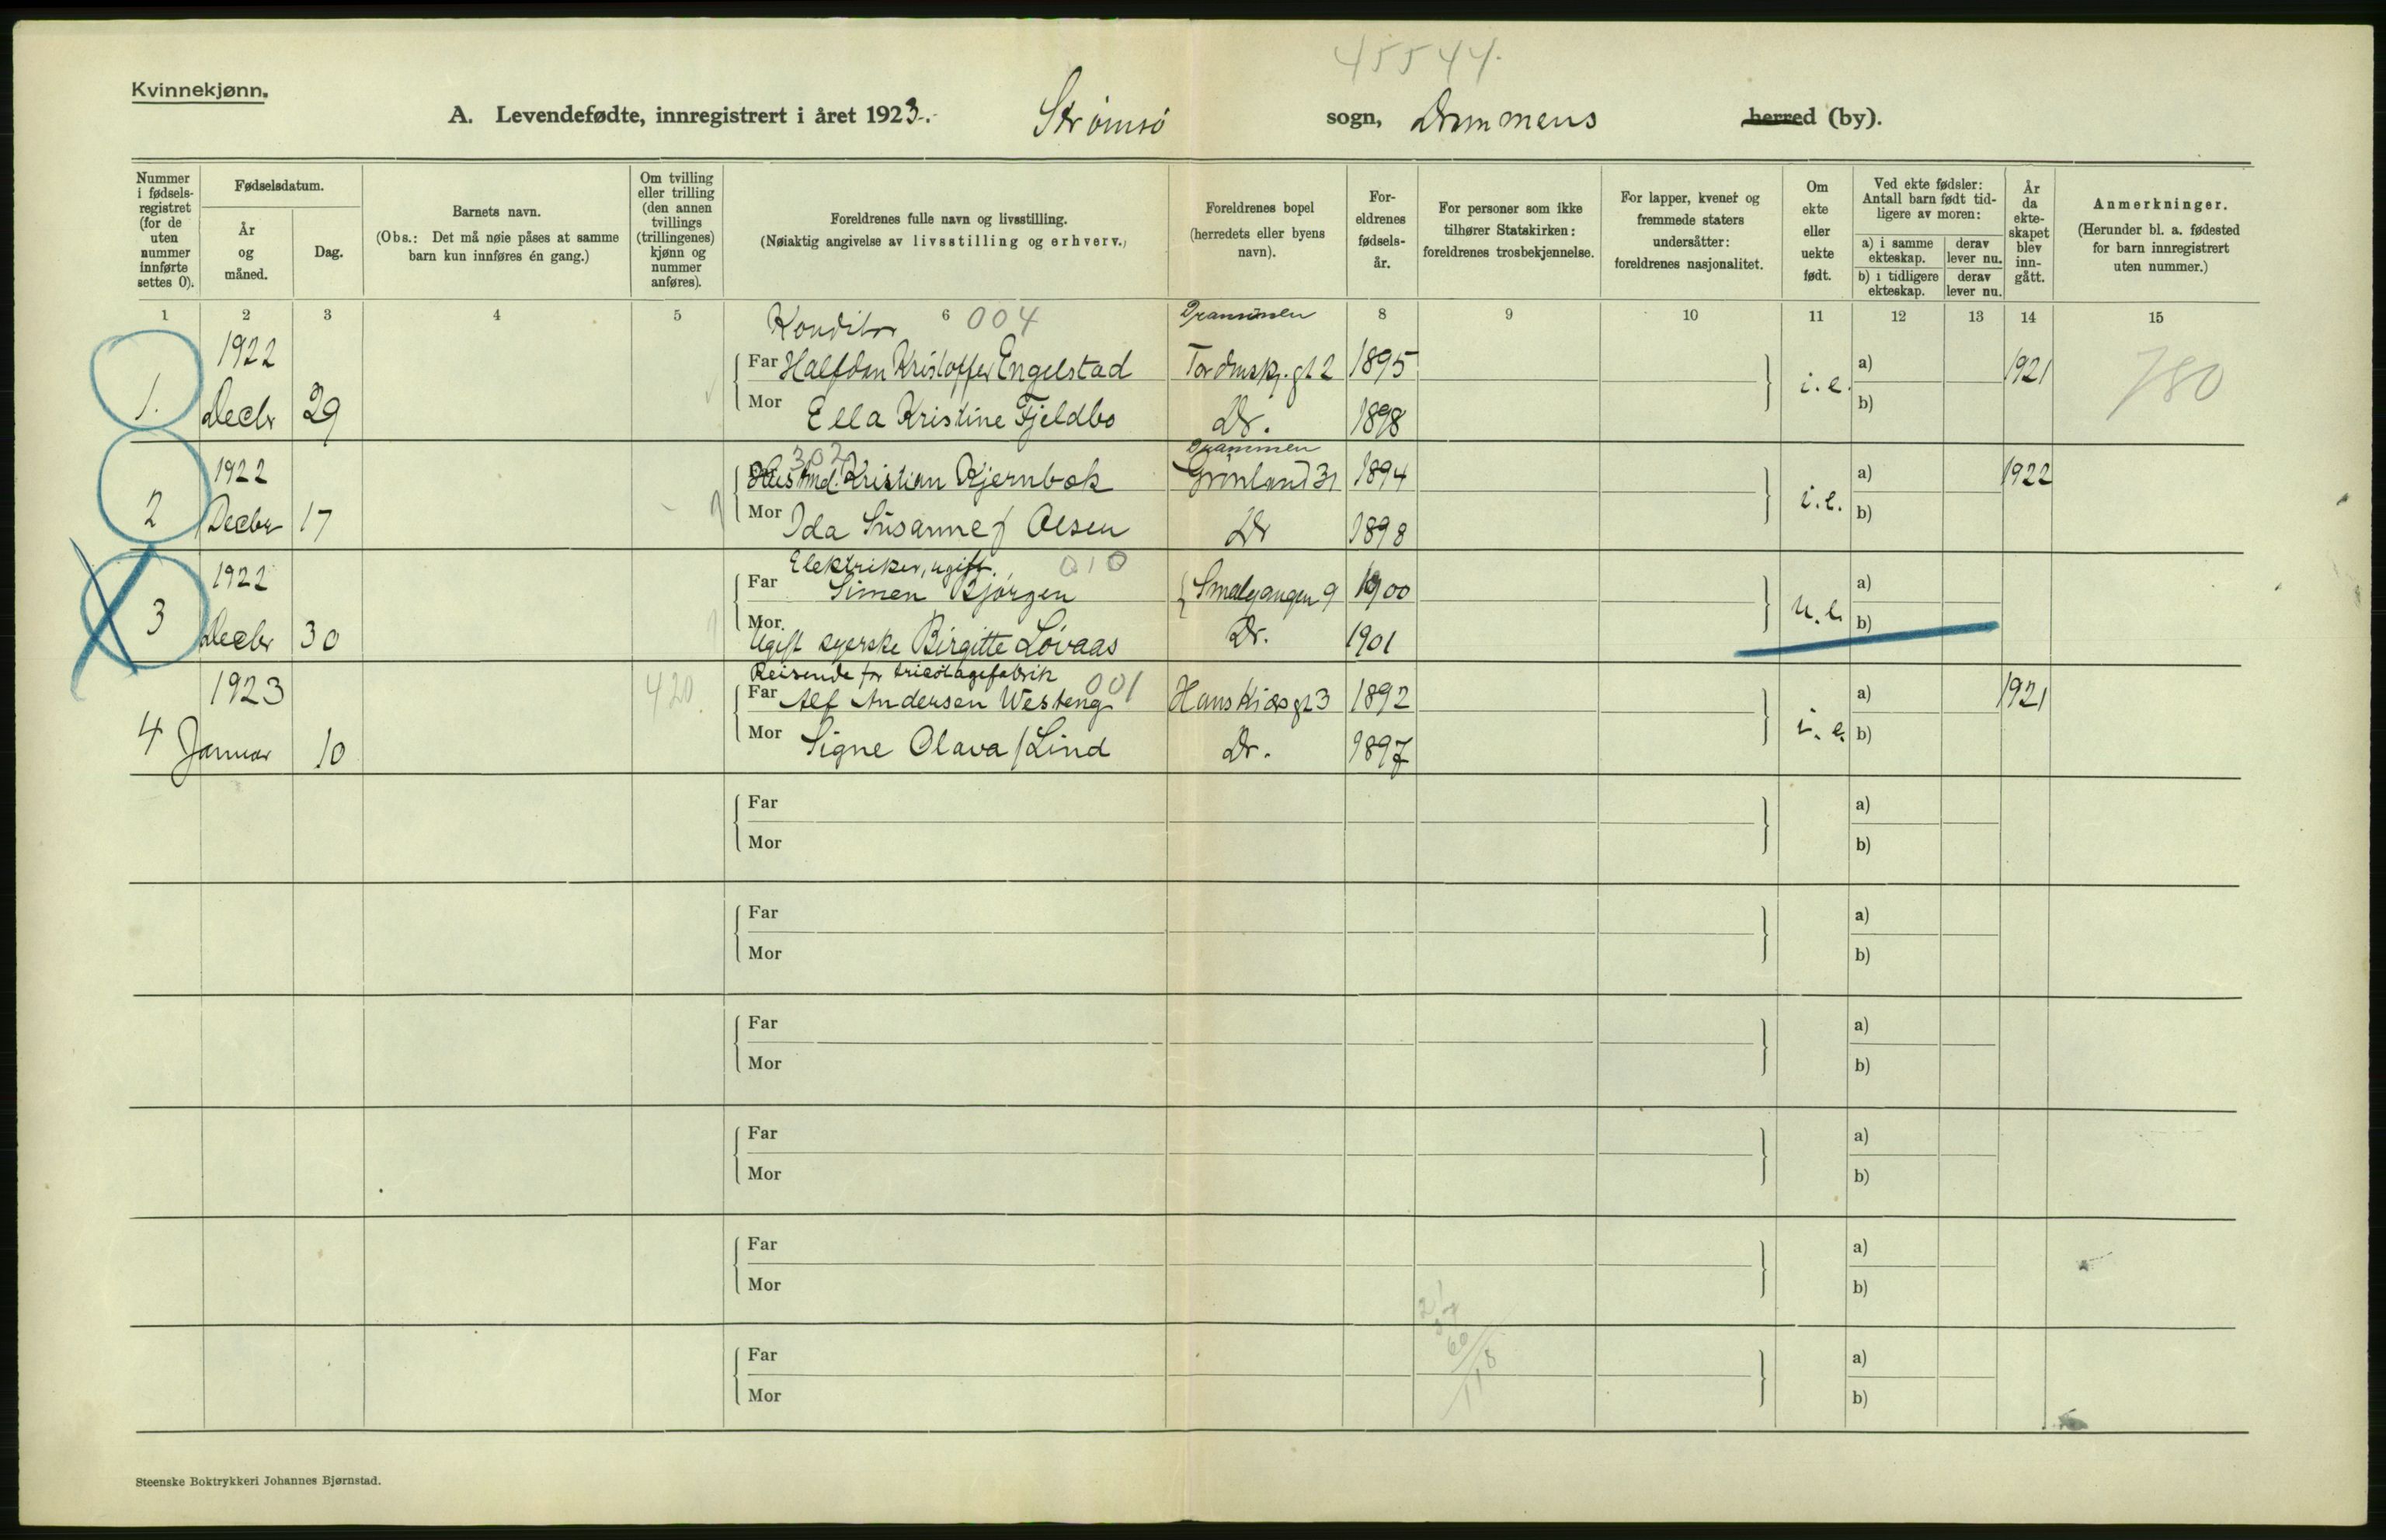 45544.
Kvinnekjønn.
A. Levendefødte, innregistrert i året 1923. Strømsø sogn, Drammens herred (by).
Nummer i fødsels- registret (for de uten nummer innførte settes 0).
Fødselsdatum.
År og måned.
Dag.
Barnets navn.
(Obs.: Det må nøie påses at samme barn kun innføres én gang.)
Om tvilling eller trilling (den annen tvillings (trillingenes) kjønn og nummer anføres).
Foreldrenes fulle navn og livsstilling.
(Nøiaktig angivelse av livsstilling og erhverv.)
Foreldrenes bopel (herredets eller byens navn).
For- eldrenes fødsels- år.
For personer som ikke tilhører Statskirken: foreldrenes trosbekjennelse.
For lapper, kvener og fremmede staters undersåtter: foreldrenes nasjonalitet.
Om ekte eller uekte født.
Ved ekte fødsler: Antall barn født tid- ligere av moren:
a) i samme ekteskap. derav lever nu.
b) i tidligere ekteskap. derav lever nu.
År da ekte- skapet blev inn- gått.
Anmerkninger.
(Herunder bl. a. fødested for barn innregistrert uten nummer.)
1 2 3 4 5 6 8 9 10 11 12 13 14 15
Konditor 004 Drammen
1922 Far Halfdan Kristoffer Engelstad gt 2 1895 a) 1921 780
1. Decbr 29 Mor Ella Kristine Fjeldbo Dr. 1898 i.e. b)
302 Drammen
1922 Kristian Kjernbæk Grønland 31 1894 a) 1922
2 Decbr 17 Mor Ida Susanne Olsen Dr 1898 i.e. b)
Elektriker, ugift. 010
1922 Far Simen Bjørgen Smalgangen 9 1900 a)
3 Decbr 30 Mor Ugift syerske Birgitte Løvaas Dr. 1901 u.e. b)
Reisende for tricotagefabrik 001
1923 420. Far Alf Andersen Westeng Hans Kiærs gt 3 1892 a) 1921
4 Januar 10 Mor Signe Olava Lind Dr. 1897 i.e. b)
Far a)
Mor b)
Far a)
Mor b)
Far a)
Mor b)
Far a)
Mor b)
Far a)
Mor b)
Far a)
Mor b)
60
118
Steenske Boktrykkeri Johannes Bjørnstad.